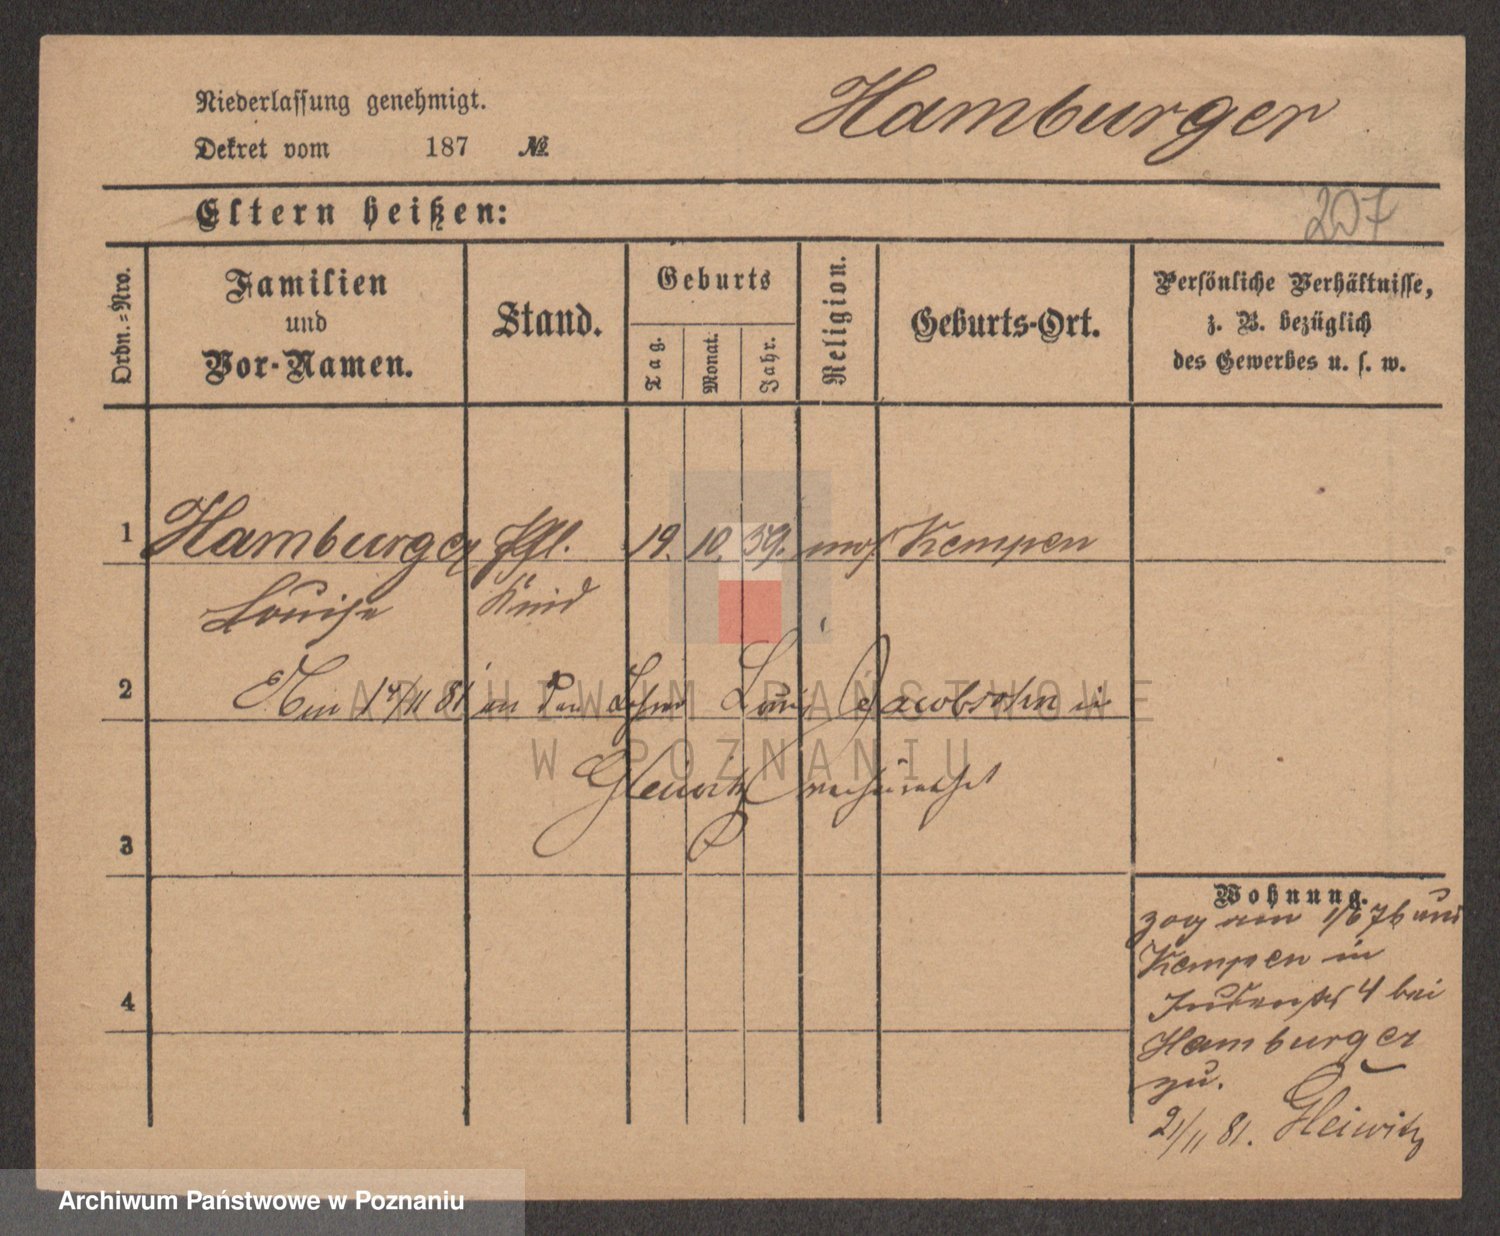 Niederlassung genehmigt.
Hamburger
Dekret vom 187 №
Eltern heißen:
207
Ordn.-Nro.
Familien
und
Vor-Namen.
Stand.
Geburts
Tag.
Monat.
Jahr.
Religion.
Geburts-Ort.
Persönliche Verhältnisse,
z. B. bezüglich
des Gewerbes u. s. w.
1 Hamburger 19. 10. 59. mos Kempen
Louise Kind
2 Am 17/11 81 an den Lehrer Louis Jacobsohn in
Gleiwitz verheirathet
3
Wohnung.
zog am 1/6 76 aus
Kempen in
Judenstr 4 bei
4
Hamburger
zu.
21/11 81. Gleiwitz
ARCHIWUM PAŃSTWOWE
W POZNANIU
Archiwum Państwowe w Poznaniu